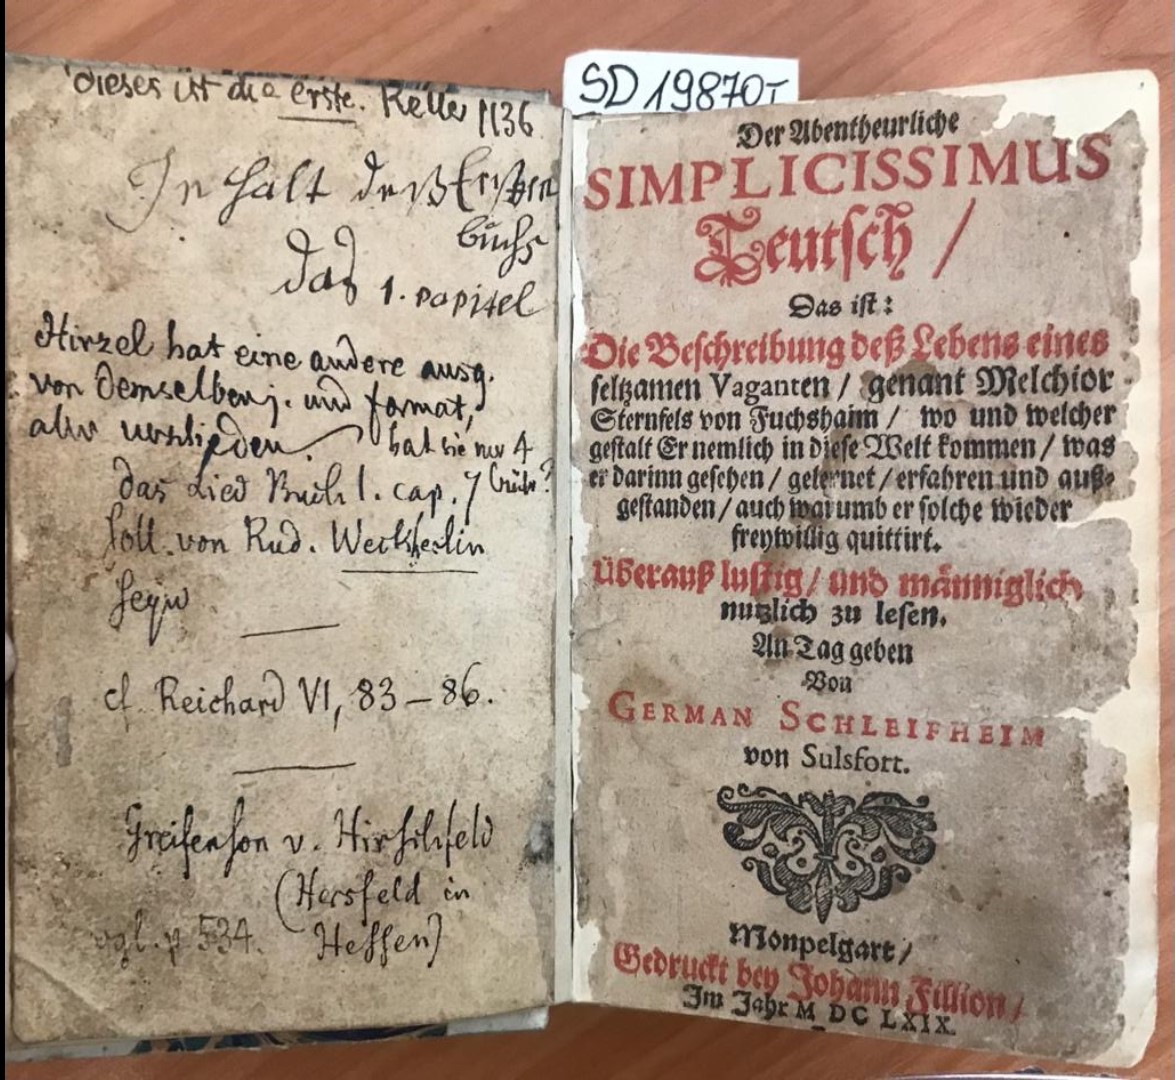 SD 19870
dieses ist die erste. Keller 1136
Inhalt deß Ersten
buchs
Das 1. capitel
Hirzel hat eine andere ausg.
von demselben j. und format,
aber verschieden. hat sie nur 4
das Lied Buch 1. cap. 7
soll von Rud. Weckherlin
seyn
cf. Reichard VI, 83-86.
Greifenson v. Hirschfeld
(Hersfeld in
vgl. p 534. Hessen)
Der Abentheurliche
SIMPLICISSIMUS
Teutsch /
Das ist:
Die Beschreibung deß Lebens eines
seltzamen Vaganten / genant Melchior
Sternfels von Fuchshaim / wo und welcher
gestalt Er nemlich in diese Welt kommen / was
er darinn gesehen / gelernet / erfahren und auß-
gestanden / auch warumb er solche wieder
freywillig quittirt.
Überauß lustig / und männiglich
nutzlich zu lesen.
An Tag geben
Von
GERMAN SCHLEIFHEIM
von Sulsfort.
Monpelgart /
Gedruckt bey Johann Fillion /
Im Jahr M DC LXIX.